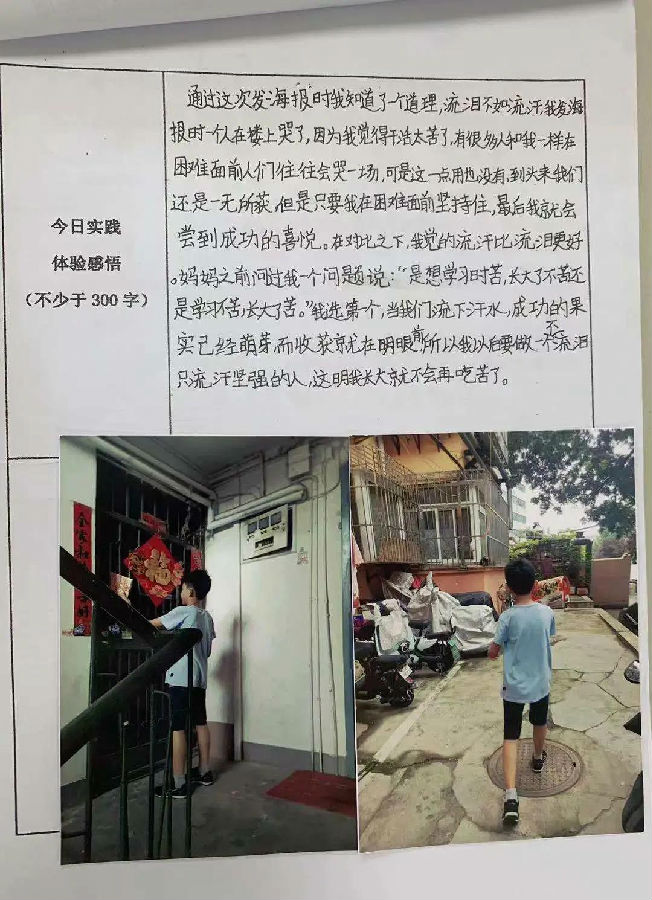 今日实践
体验感悟
（不少于 300 字）
通过这次发海报时我知道了一个道理,流泪不如流汗,我发海
报时一个人在楼上哭了,因为我觉得干活太苦了,有很多人和我一样在
困难面前人们往往会哭一场,可是这一点用也没有,到头来我们
还是一无所获,但是只要我在困难面前坚持住,最后我就会
尝到成功的喜悦。在对比之下,我觉的流汗比流泪更好
。妈妈之前问过我一个问题说:“是想学习时苦,长大了不苦还
是学习不苦,长大了苦。”我选第一个,当我们流下汗水,成功的果
实已经萌芽,而收获就在明眼前所以我以后要做一不流泪
只流汗坚强的人,这明我长大就不会再吃苦了。
福